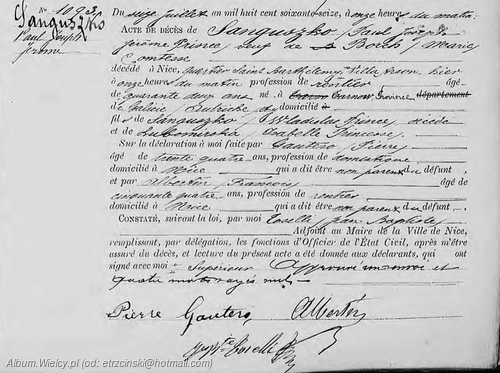 No 1092
Sanguszko
Paul Joseph
Jérôme
Du seize juillet an mil huit cent soixante-seize, à onze heures du matin
ACTE DE DÉCÈS de Sanguszko / Paul Joseph
Jérôme Prince, veuf de Borch / Marie
Comtesse
décédé à Nice, quartier Saint Barthélemy, Villa Arson, hier
à onze heures du matin, profession de rentier âgé
de quarante deux ans, né à Tarnow, Province département
de Galicie Autriche et y domicilié à
fils de Sanguszko / Wladislas Prince, décédé
et de Lubomirska / Isabelle Princesse.
Sur la déclaration à moi faite par Gautero / Pierre /
âgé de trente quatre ans, profession de domestique
domicilié à Nice qui a dit être non parent du défunt,
et par Albertin / Francois / âgé de
cinquante quatre ans, profession de rentier
domicilié à Nice qui a dit être non parent du défunt.
CONSTATÉ, suivant la loi, par moi Toselli / Jean Baptiste /
Adjoint au Maire de la Ville de Nice,
remplissant, par délégation, les fonctions d'Officier de l'État Civil, après m'être
assuré du décès, et lecture du présent acte a été donnée aux déclarants, qui ont
signé avec moi. Supérieur Approuvé un renvoi et
quatre mots rayés nuls
Pierre Gautero Albertin
Toselli
Album.Wielcy.pl (od: etrzcinski@hotmail.com)